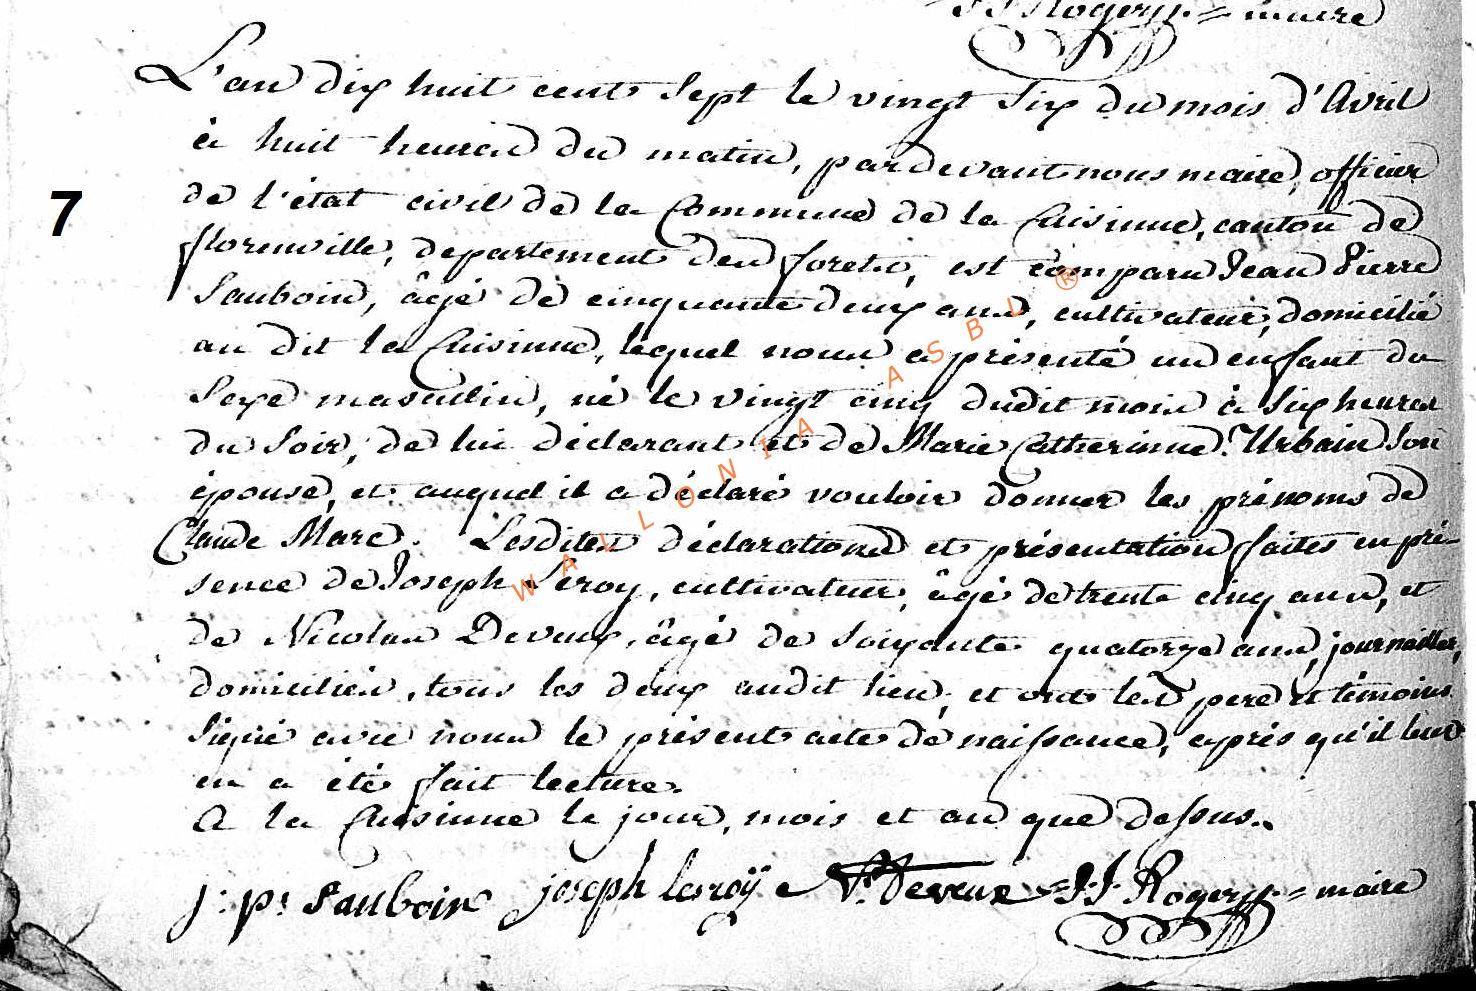 J J Rogery = maire
L'an dix huit cent sept le vingt six du mois d'Avril
à huit heures du matin, pardevant nous maire, officier
7
de l'état civil de la Commune de la Cuisinne, canton de
florenville, departement des forets, est comparu Jean Pierre
Sauboin, âgé de cinquante deux ans, cultivateur, domicilié
au dit la Cuisinne, lequel nous a présenté un enfant du
Sexe masculin, né le vingt cinq dudit mois à six heures
du soir, de lui déclarant et de Marie Catherinne Urbain son
épouse, et auquel il a déclaré vouloir donner les prénoms de
Claude Marc. Lesdites déclarations et présentation faites en pré-
sence de Joseph Leroy, cultivateur, âgé de trente cinq ans, et
de Nicolas Deveux, âgé de soixante quatorze ans, journailler,
domiciliés, tous les deux audit lieu, et ont les pere et témoins
signé avec nous le présent acte de naissance, après qu'il leur
en a été fait lecture.
A la Cuisinne le jour, mois et an que dessus.
J: P: Sauboin joseph leroÿ N. Deveux J J Rogery = maire
WALLONIA ASBL ®